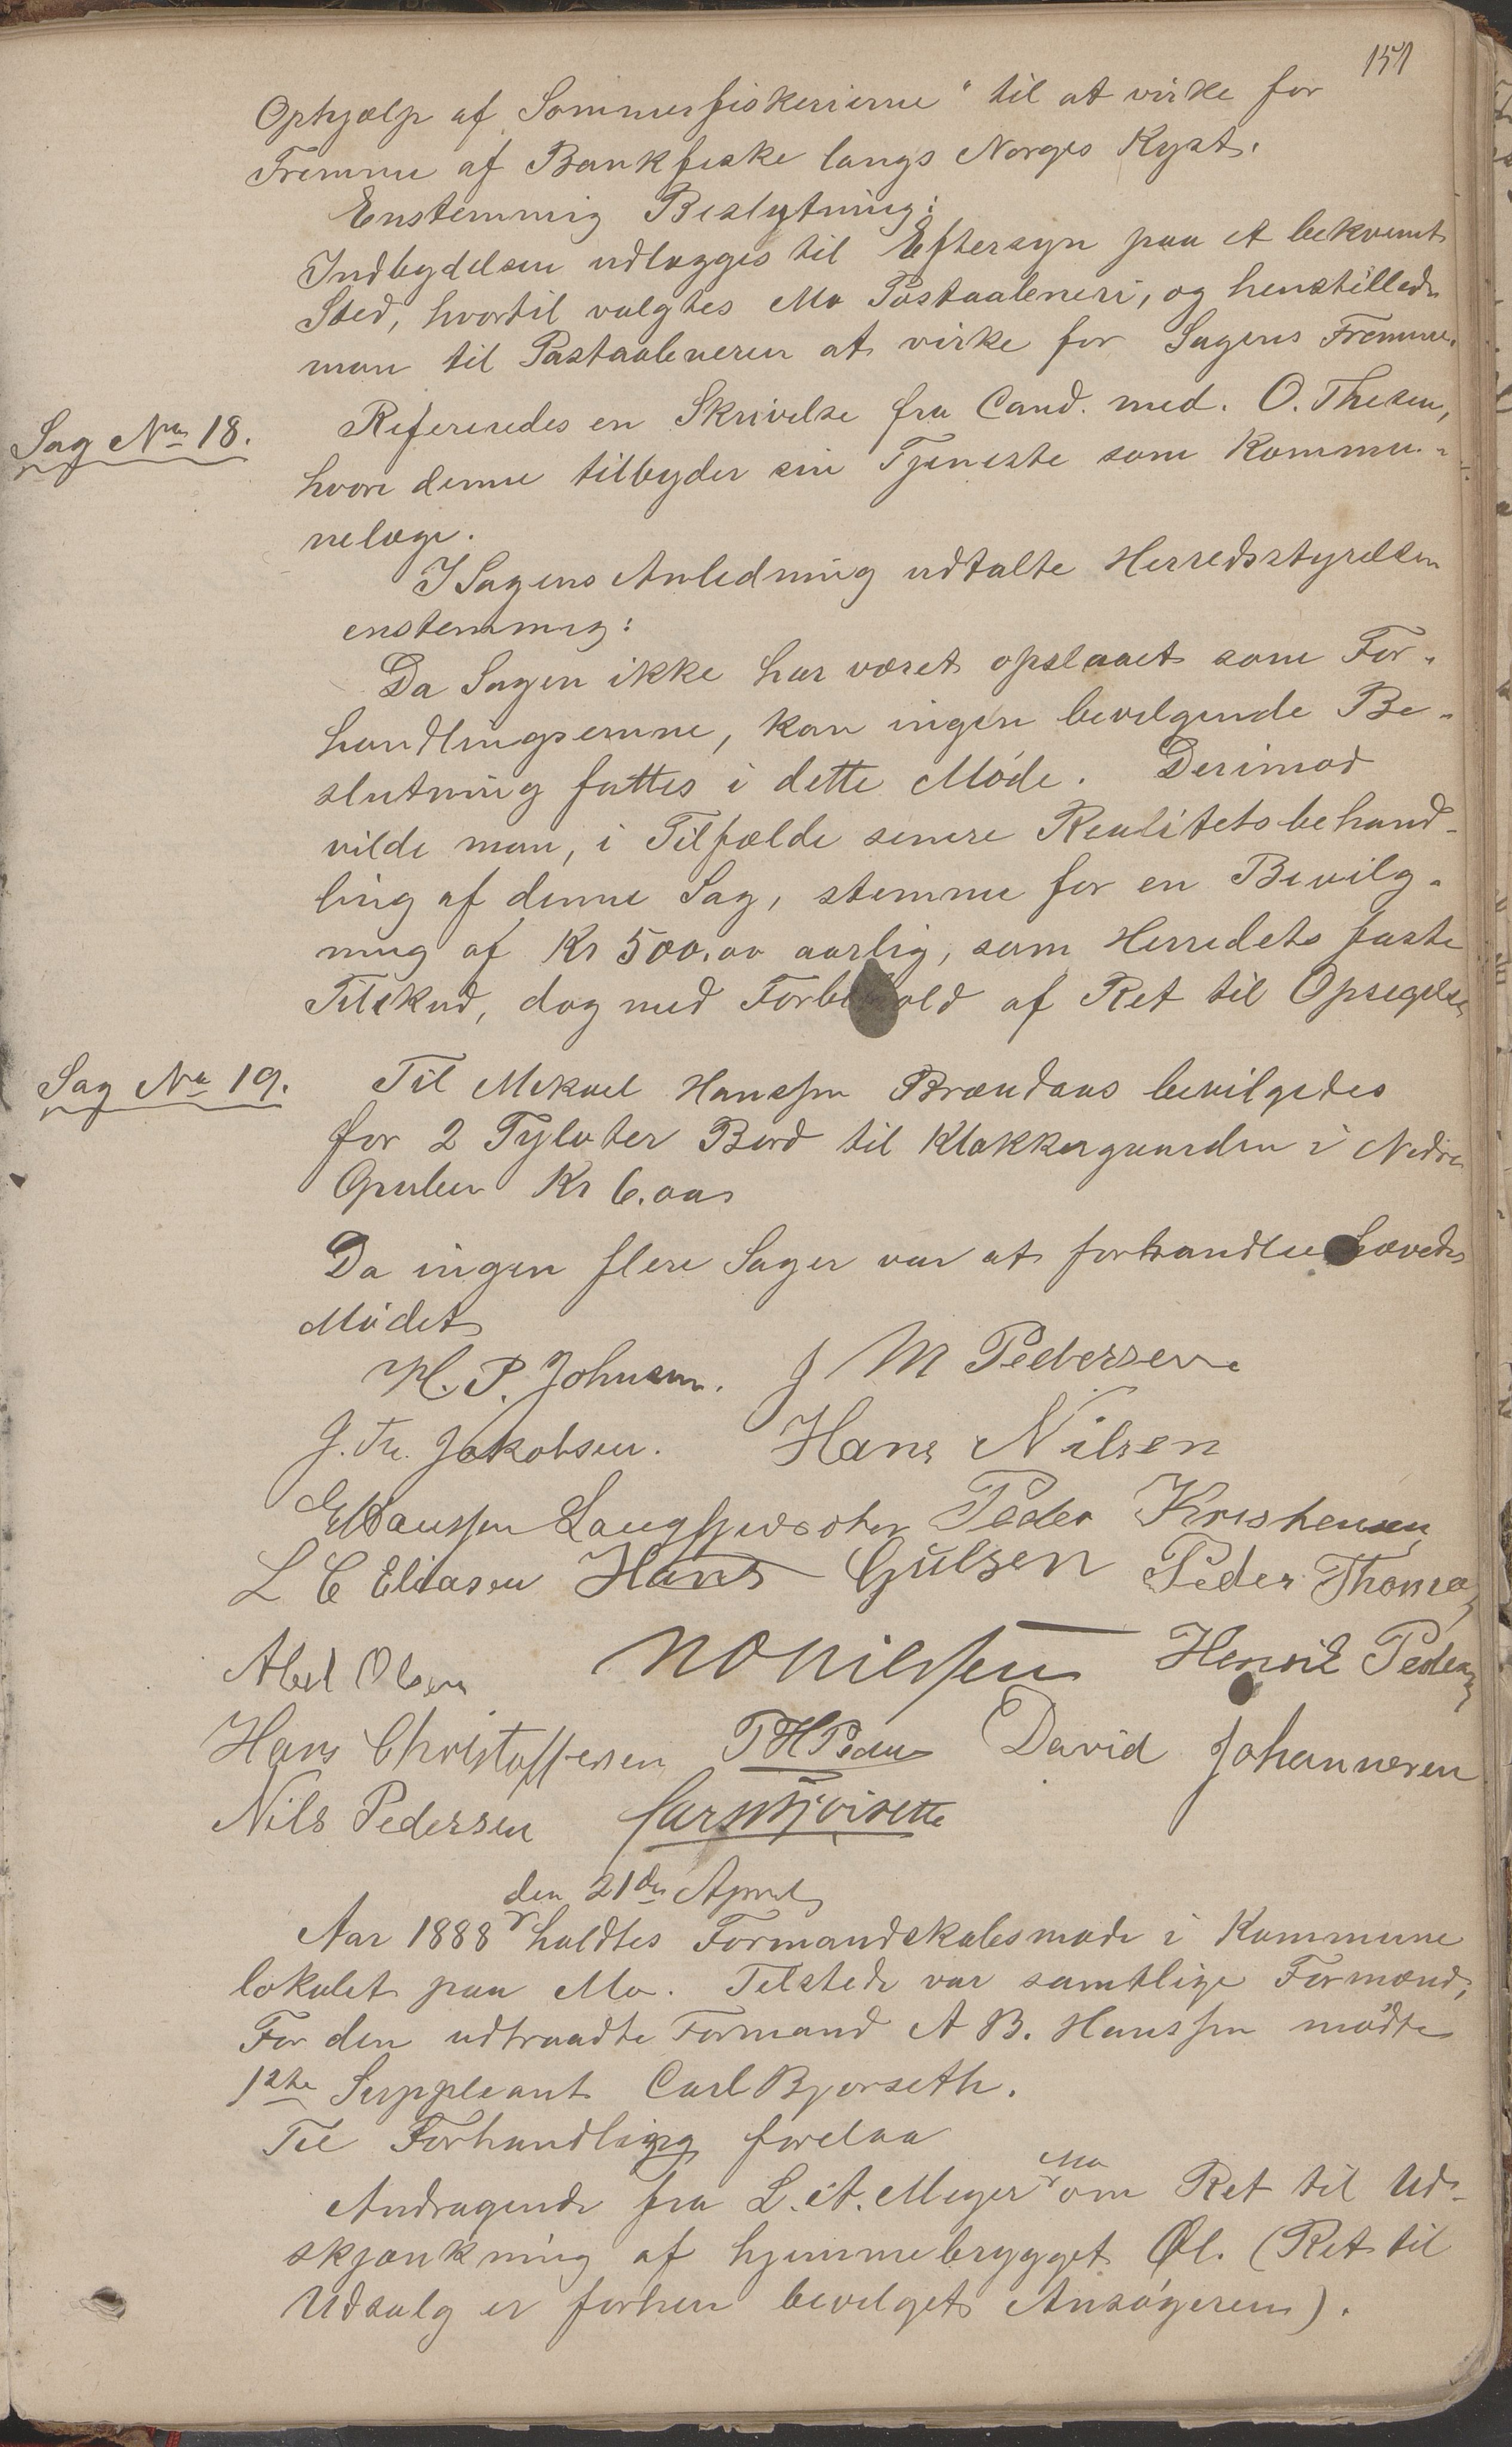 151
Ophjælp af Sommerfiskerierne" til at virke for
Fremme af Bankfiske langs Norges Kyst.
Enstemmig Beslutning:
Indbydelsen udlægges til Eftersyn paa et bekvemt
Sted, hvortil valgtes Mo Postaabneri, og henstilledes
man til Postaabneren at virke for Sagens Fremme.
Sag No 18.
Refereredes en Skrivelse fra Cand. med. O. Thesen,
hvori denne tilbyder sin Tjeneste som Kommu-
nelæge.
I Sagens Anledning udtalte Herredsstyrelsen
enstemmig:
Da Sagen ikke har været opslaaet som For-
handlingsemne, kan ingen bevilgende Be-
slutning fattes i dette Møde. Derimod
vilde man, i Tilfælde senere Realitetsbehand-
ling af denne Sag, stemme for en Bevilg-
ning af Kr 500.00 aarlig, som Herredets faste
Tilskud, dog med Forbehold af Ret til Opsigelse
Sag No 19.
Til Mikael Hanssen Brændaas bevilgedes
for 2 Tylvter Bord til Klokkergaarden i Nedre
Gruben Kr 6.00
Da ingen flere Sager var at forhandle hævedes
Mødet
H. P. Johnsen. J M Pedersen
J. Fr. Jakobsen. Hans Nilsen
Peder Kristensen
L C Eliasen Hans Gulsen Peder Thomas
Abel Olsen N O Nilssen Henrik Peders
Hans Christoffersen P H Peders David Johannesen
Nils Pedersen
den 21de April
Aar 1888 holdtes Formandskabsmøde i Kommune
lokalet paa Mo. Tilstede var samtlige Formænd,
For den udtraadte Formand A B. Hanssen mødte
1ste Suppleant Carl Bjørseth.
Til Forhandling forelaa
Andragende fra L. A. Meyer Mo om Ret til Ud-
skjænkning af hjemmebrygget Øl. (Ret til
Udsalg er forhen bevilget Ansøgeren).